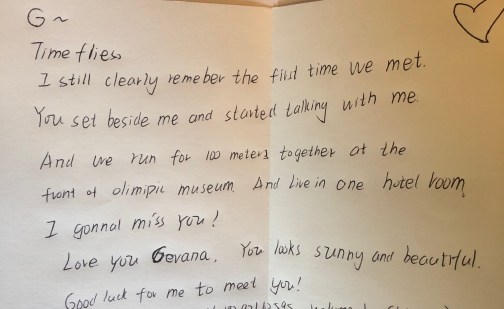 G~
Time flies
I still clearly remeber the first time we met.
You set beside me and started talking with me
And we run for 100 meters together at the
front of olimipic museum And live in one hotel room
I gonnal miss you!
Love you Gevana. You looks sunny and beautiful.
Good luck for me to meet you!